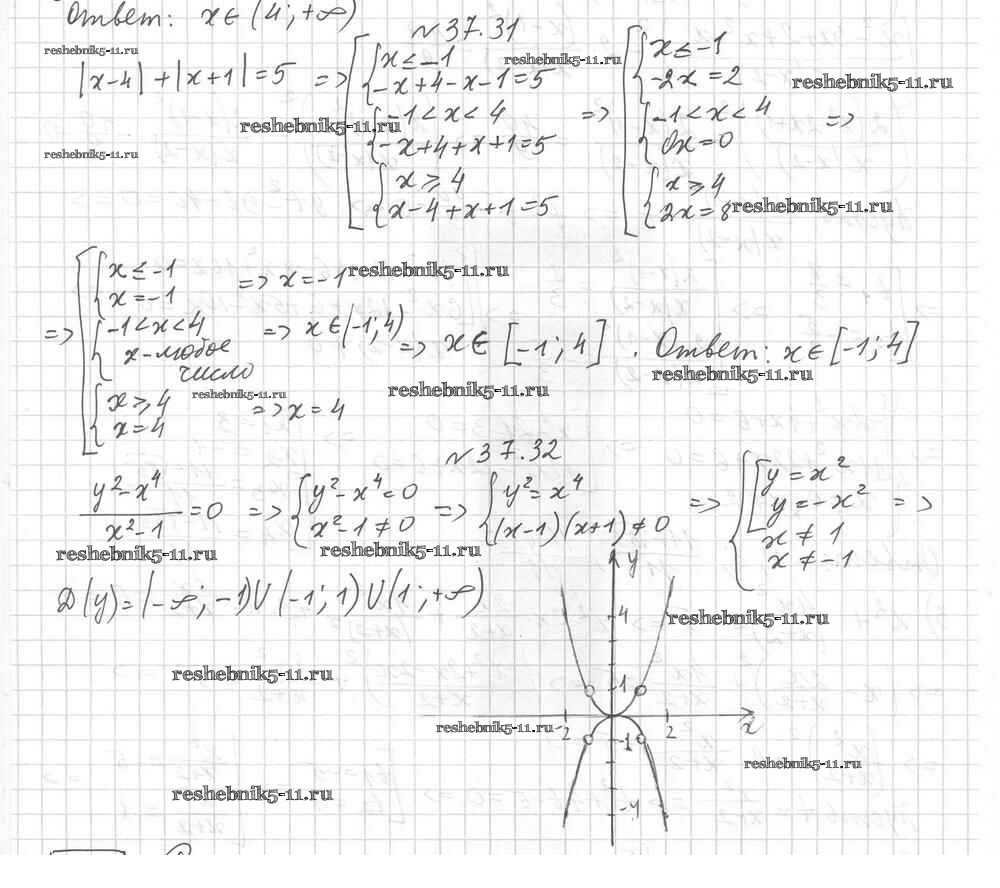 Ответ: x ∈ (4; +∞)
№ 37.31
reshebnik5-11.ru
|x-4| + |x+1| = 5 => [ { x ≤ -1
-x+4-x-1=5
{ -1 < x < 4
-x+4+x+1=5
{ x ≥ 4
x-4+x+1=5
=> [ { x ≤ -1
-2x = 2
{ -1 < x < 4
0x = 0
{ x ≥ 4
2x = 8
=>
reshebnik5-11.ru
reshebnik5-11.ru
reshebnik5-11.ru
reshebnik5-11.ru
reshebnik5-11.ru
=> [ { x ≤ -1
x = -1
=> x = -1
{ -1 < x < 4
x - любое
число
=> x ∈ (-1; 4)
{ x ≥ 4
x = 4
=> x = 4
=> x ∈ [-1; 4]. Ответ: x ∈ [-1; 4]
reshebnik5-11.ru
reshebnik5-11.ru
reshebnik5-11.ru
reshebnik5-11.ru
№ 37.32
(y²-x⁴)/(x²-1) = 0 => { y²-x⁴=0
x²-1 ≠ 0
=> { y² = x⁴
(x-1)(x+1) ≠ 0
=> { [ y = x²
y = -x²
x ≠ 1
x ≠ -1
=>
reshebnik5-11.ru
reshebnik5-11.ru
D(y) = (-∞; -1) U (-1; 1) U (1; +∞)
y
4
reshebnik5-11.ru
reshebnik5-11.ru
1
reshebnik5-11.ru
-2
2
x
-1
reshebnik5-11.ru
reshebnik5-11.ru
-4